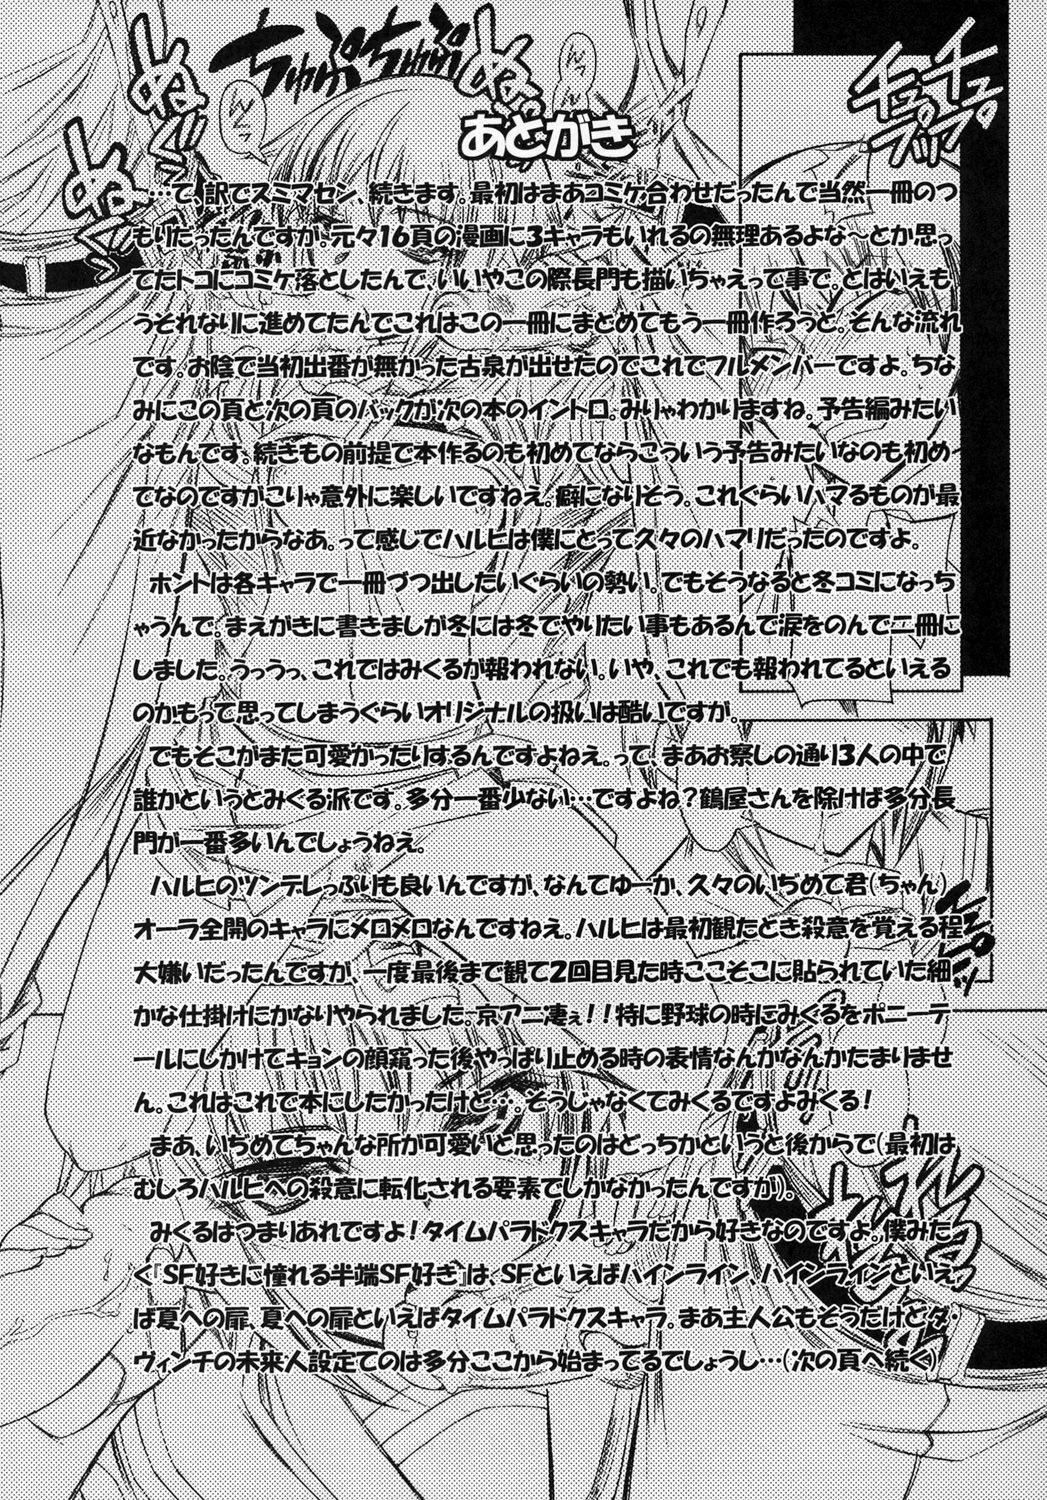 ちゅぷちゅぷ
ぬっ
ぬぐっ
ぬぐっ
チュプッ
チュプッ
あとがき
…て、訳でスミマセン、続きます。最初はまあコミケ合わせだったんで当然一冊のつ
もりだったんですが。元々16頁の漫画に3キャラもいれるの無理あるよな〜とか思っ
てたトコにコミケ落としたんで、いいやこの際長門も描いちゃえって事で。とはいえも
うそれなりに進めてたんでこれはこの一冊にまとめてもう一冊作ろうと。そんな流れ
です。お陰で当初出番が無かった古泉が出せたのでこれでフルメンバーですよ。ちな
みにこの頁と次の頁のバックが次の本のイントロ。みりゃわかりますね。予告編みたい
なもんです。続きもの前提で本作るのも初めてならこういう予告みたいなのも初め
てなのですがこりゃ意外に楽しいですねえ。癖になりそう。これぐらいハマるものが最
近なかったからなあ。って感じでハルヒは僕にとって久々のハマリだったのですよ。
ホントは各キャラで一冊づつ出したいぐらいの勢い。でもそうなると冬コミになっち
ゃうんで。まえがきに書きましが冬には冬でやりたい事もあるんで涙をのんで二冊に
しました。うっうっ、これではみくるが報われない。いや、これでも報われてるといえる
のかもって思ってしまうぐらいオリジナルの扱いは酷いですが。
でもそこがまた可愛がったりするんですよねえ。って、まあお察しの通り3人の中で
誰かというとみくる派です。多分一番少ない…ですよね？鶴屋さんを除けば多分長
門が一番多いんでしょうねえ。
ハルヒのツンデレっぷりも良いんですが、なんてゆーか、久々のいぢめて君(ちゃん)
オーラ全開のキャラにメロメロなんですねえ。ハルヒは最初観たとき殺意を覚える程
大嫌いだったんですが、一度最後まで観て2回目見た時ここそこに貼られていた細
かな仕掛けにかなりやられました。京アニ凄ぇ！！特に野球の時にみくるをポニーテ
ールにしかけてキョンの顔窺った後やっぱり止める時の表情なんかなんかたまりませ
ん。これはこれで本にしたかったけど…。そうじゃなくてみくるですよみくる！
まあ、いぢめてちゃんな所が可愛いと思ったのはどっちかというと後からで(最初は
むしろハルヒへの殺意に転化される要素でしかなかったんですが)。
みくるはつまりあれですよ！タイムパラドクスキャラだから好きなのですよ。僕みた
く『SF好きに憧れる半端SF好き』は、SFといえばハインライン、ハインラインといえ
ば夏への扉、夏への扉といえばタイムパラドクスキャラ。まあ主人公もそうだけどダ・
ヴィンチの未来人設定てのは多分ここから始まってるでしょうし…(次の頁へ続く)